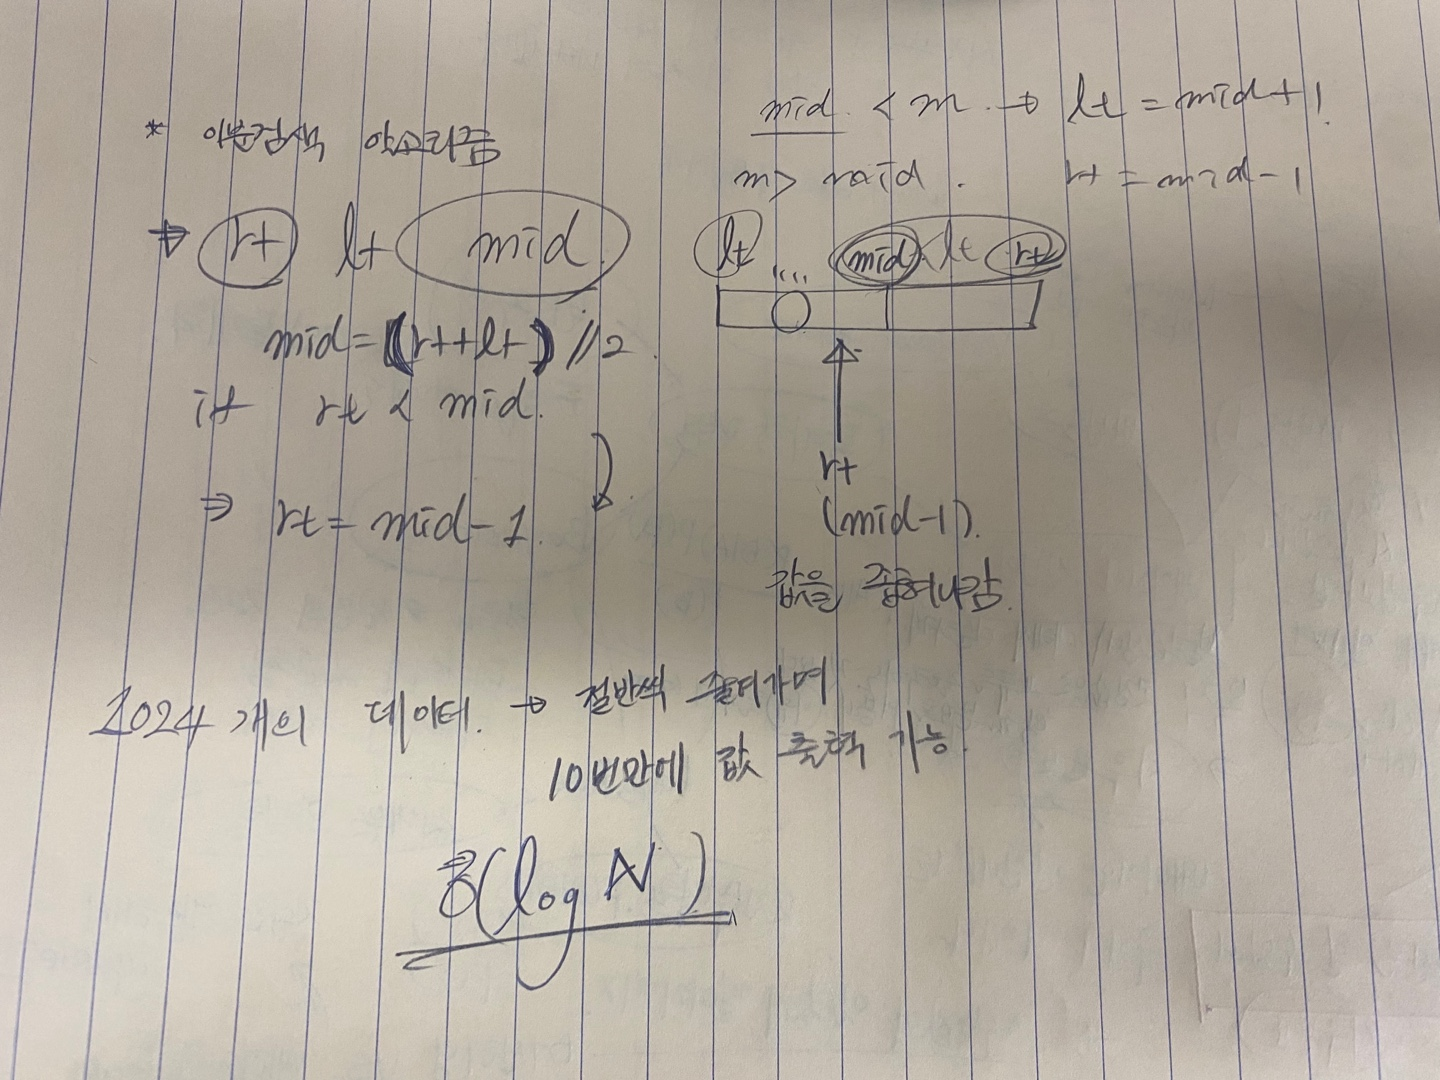 * 이분검색 알고리즘
⇒ rt lt mid.
mid = (rt+lt) //2.
if rt < mid.
⇒ rt = mid-1.
mid < m. → lt = mid+1.
m > mid. rt = mid-1
lt .... mid < lt rt
rt
(mid-1).
값을 좁혀나감.
1024개의 데이터. → 절반씩 줄여가며
10번만에 값 출력 가능.
(log N)